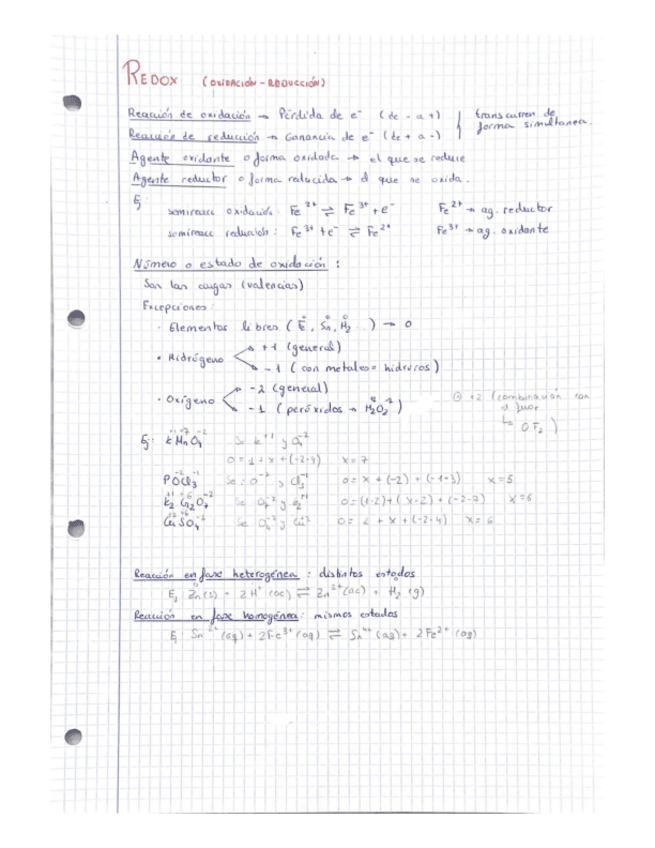 REDOX (OXIDACIÓN - REDUCCIÓN)
Reacción de oxidación → Pérdida de e⁻ (de - a +) } transcurren de forma simultanea.
Reacción de reducción → Ganancia de e⁻ (de + a -)
Agente oxidante o forma oxidada → el que se reduce
Agente reductor o forma reducida → el que se oxida.
Ej:
semireacc oxidación: Fe²⁺ ⇌ Fe³⁺ + e⁻ Fe²⁺ → ag. reductor
semireacc reducción: Fe³⁺ + e⁻ ⇌ Fe²⁺ Fe³⁺ → ag. oxidante
Número o estado de oxidación:
Son las cargas (valencias)
Excepciones:
· Elementos libres ( , Sn, H₂ ) → 0
• Hidrógeno +1 (general)
-1 (con metales = hidruros)
• Oxígeno -2 (general)
-1 (peróxidos → H₂O₂)
+2 (combinación con el fluor
↳ OF₂)
Ej: KMnO₄ Se K⁺¹ y O₄⁻²
0 = 1 + x + (-2·4) x = 7
POCl₃ Se: O⁻² y Cl₃⁻¹ 0 = x + (-2) + (-1·3) x = 5
K₂Cr₂O₇ Se O₇⁻² y K₂⁺¹ 0 = (1·2) + (x·2) + (-2·7) x = 6
CuSO₄ Se O₄⁻² y Cu⁺² 0 = 2 + x + (-2·4) x = 6
Reacción en fase heterogénea: distintos estados
Ej: Zn(s) + 2H⁺(ac) ⇌ Zn²⁺(ac) + H₂(g)
Reacción en fase homogénea: mismos estados
Ej: Sn²⁺(aq) + 2Fe³⁺(aq) ⇌ Sn⁴⁺(aq) + 2Fe²⁺(aq)